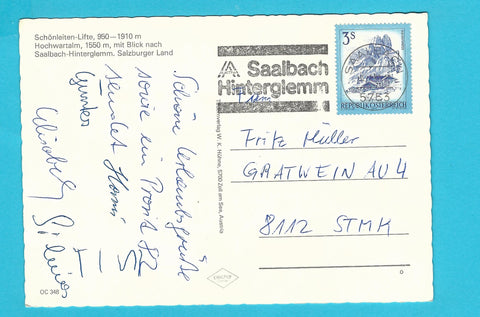 Schönleiten-Lifte, 950—1910 m
Hochwartalm, 1550 m, mit Blick nach
Saalbach-Hinterglemm, Salzburger Land
Schöne Urlaubsgrüße
sowie ein Prosit 82
sendet Hansi
Günter
OC 348
Saalbach
Hinterglemm
3s
REPUBLIK ÖSTERREICH
5753
Fritz Müller
GRATWEIN AU 4
8112 STMK
W. K. Hühne, 5700 Zell am See, Austria